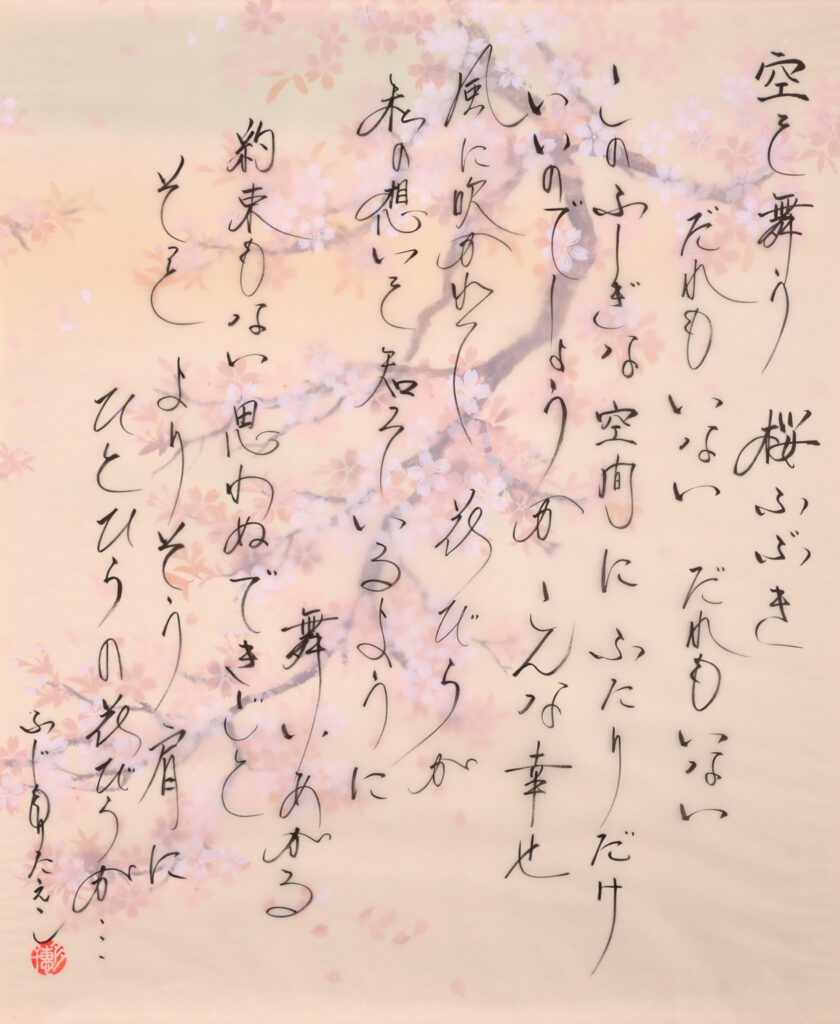 空を舞う 桜ふぶき
だれも いない だれも いない
このふしぎな空間に ふたりだけ
いいのでしょうか こんな幸せ
風に吹かれて 花びらが
私の想いを知っているように
舞いあがる
約束もない思わぬできごと
そっと よりそう 肩に
ひとひらの花びらが…
ふじ
たえこ